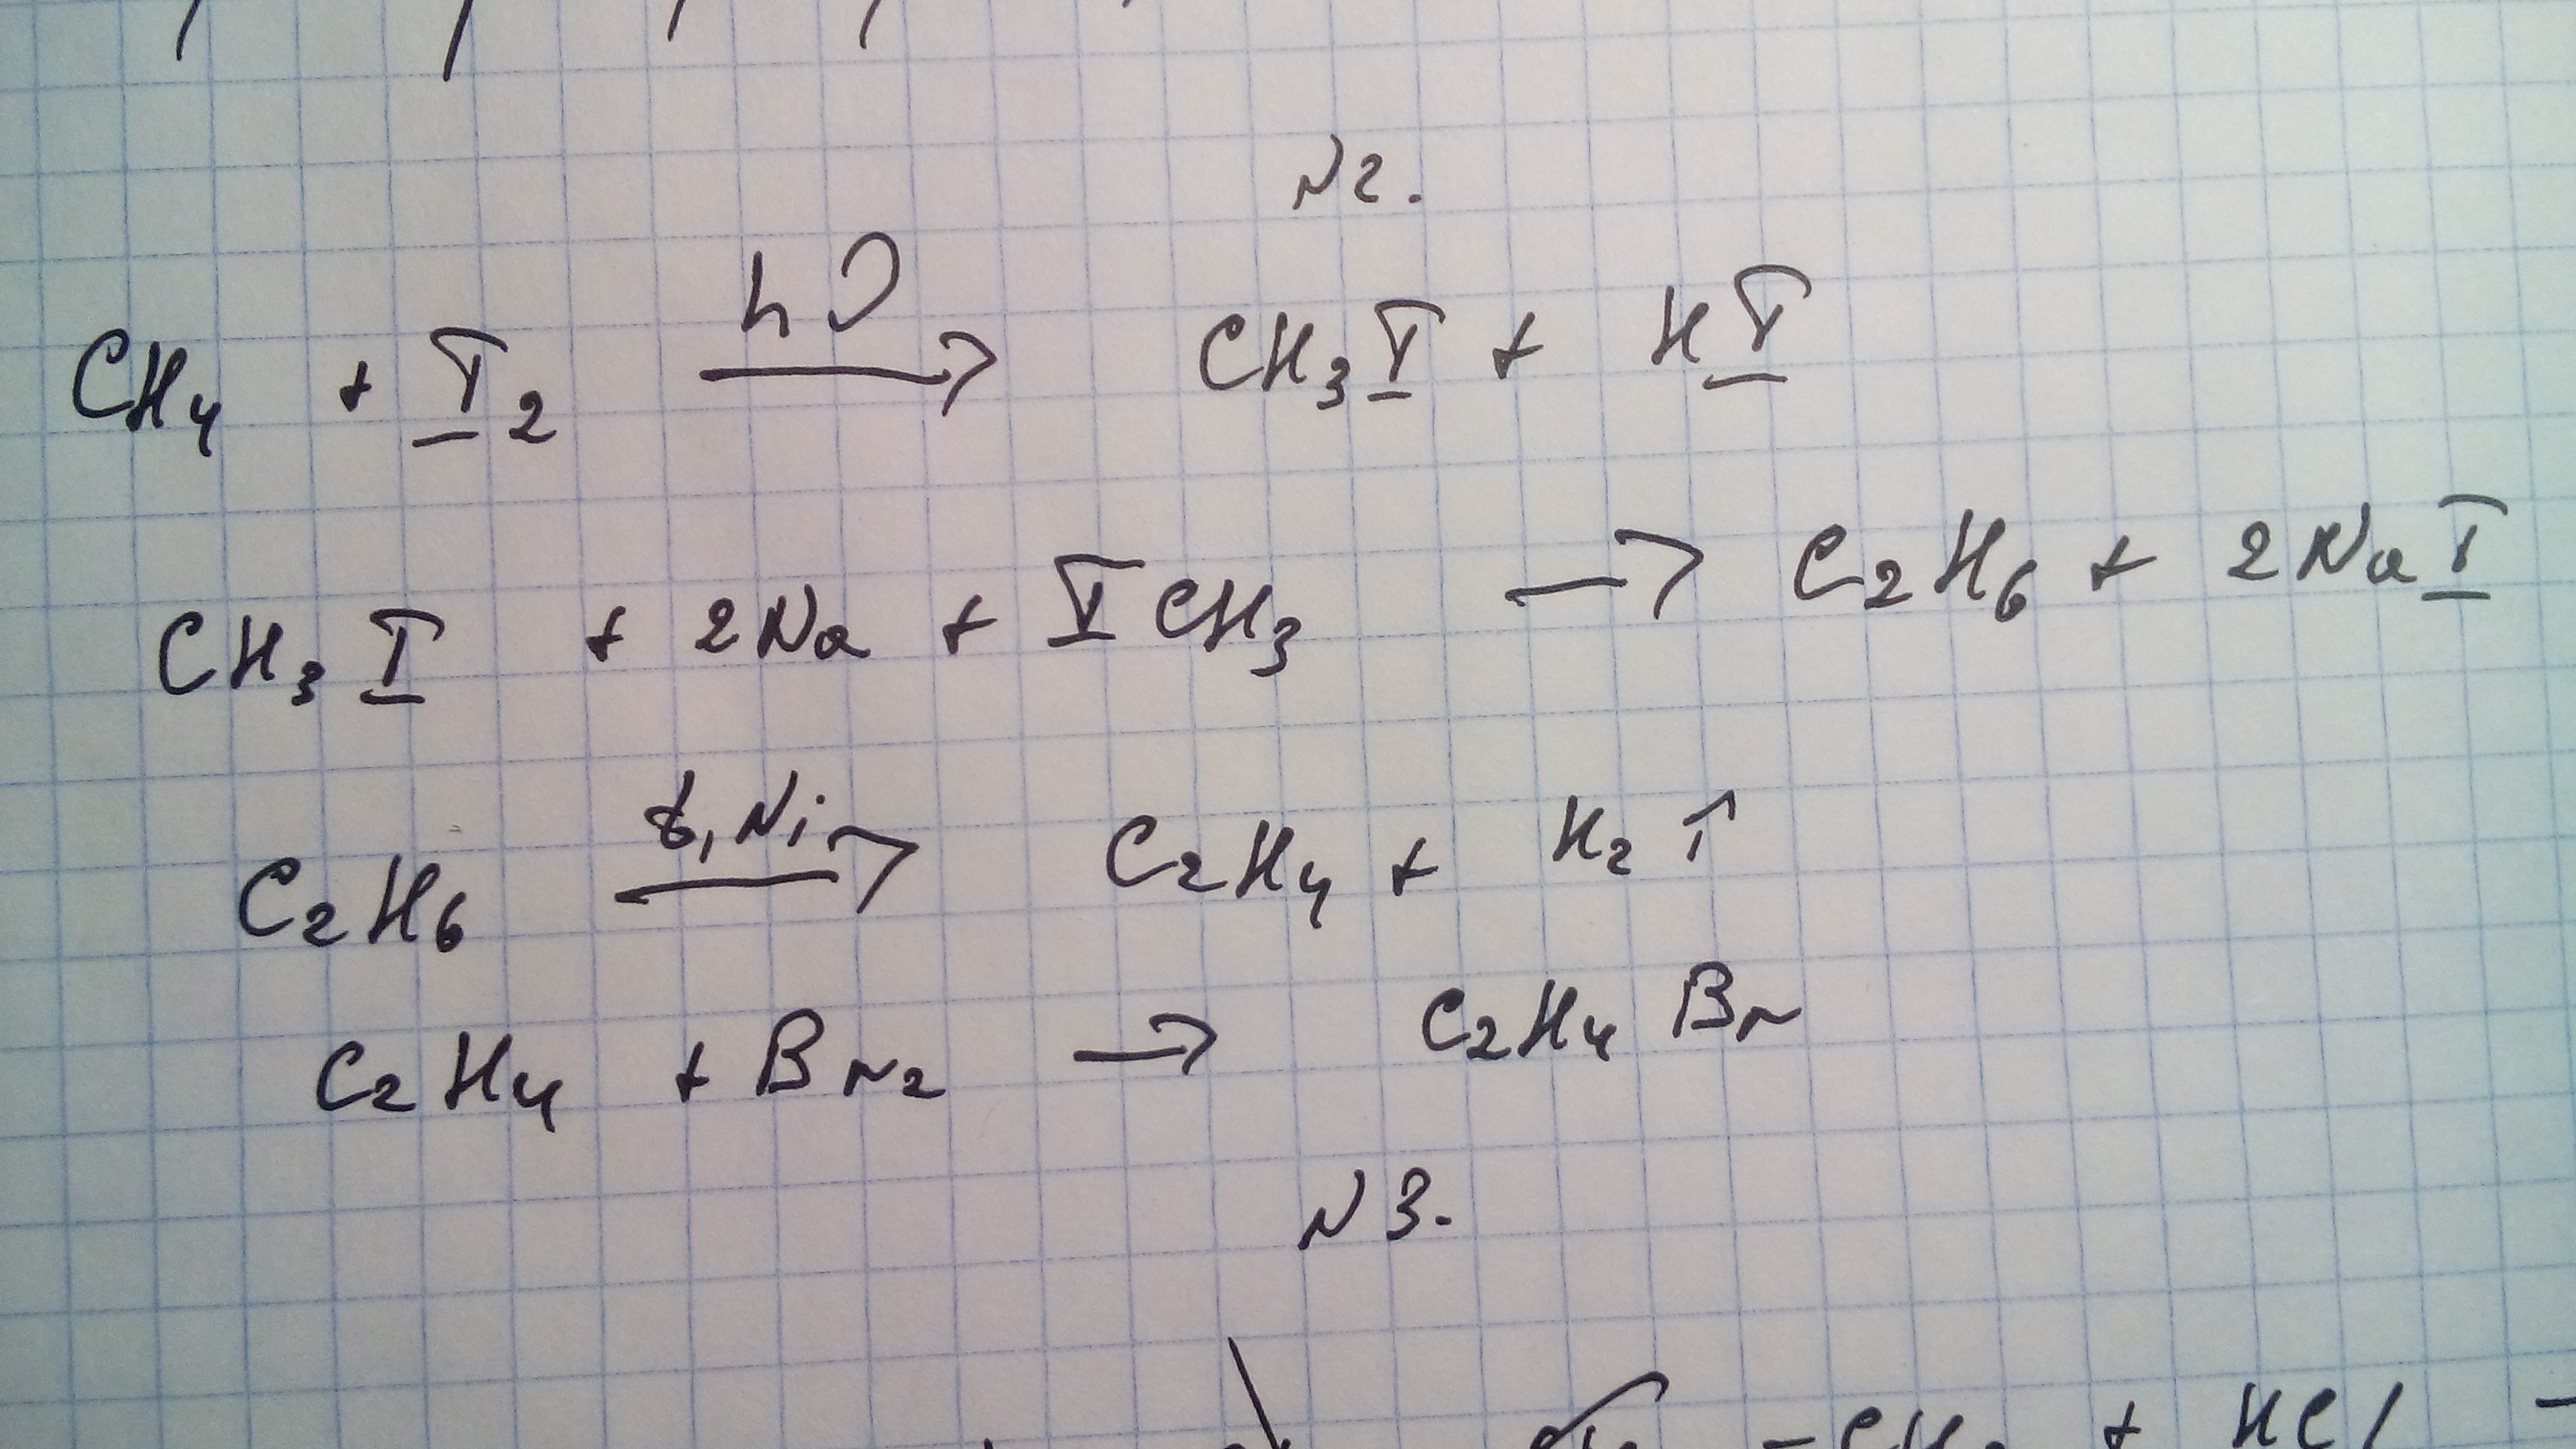 N2.
CH₄ + I₂ —hν→ CH₃I + HI
CH₃I + 2Na + ICH₃ → C₂H₆ + 2NaI
C₂H₆ —t, Ni→ C₂H₄ + H₂↑
C₂H₄ + Br₂ → C₂H₄Br
N3.
+ HCl